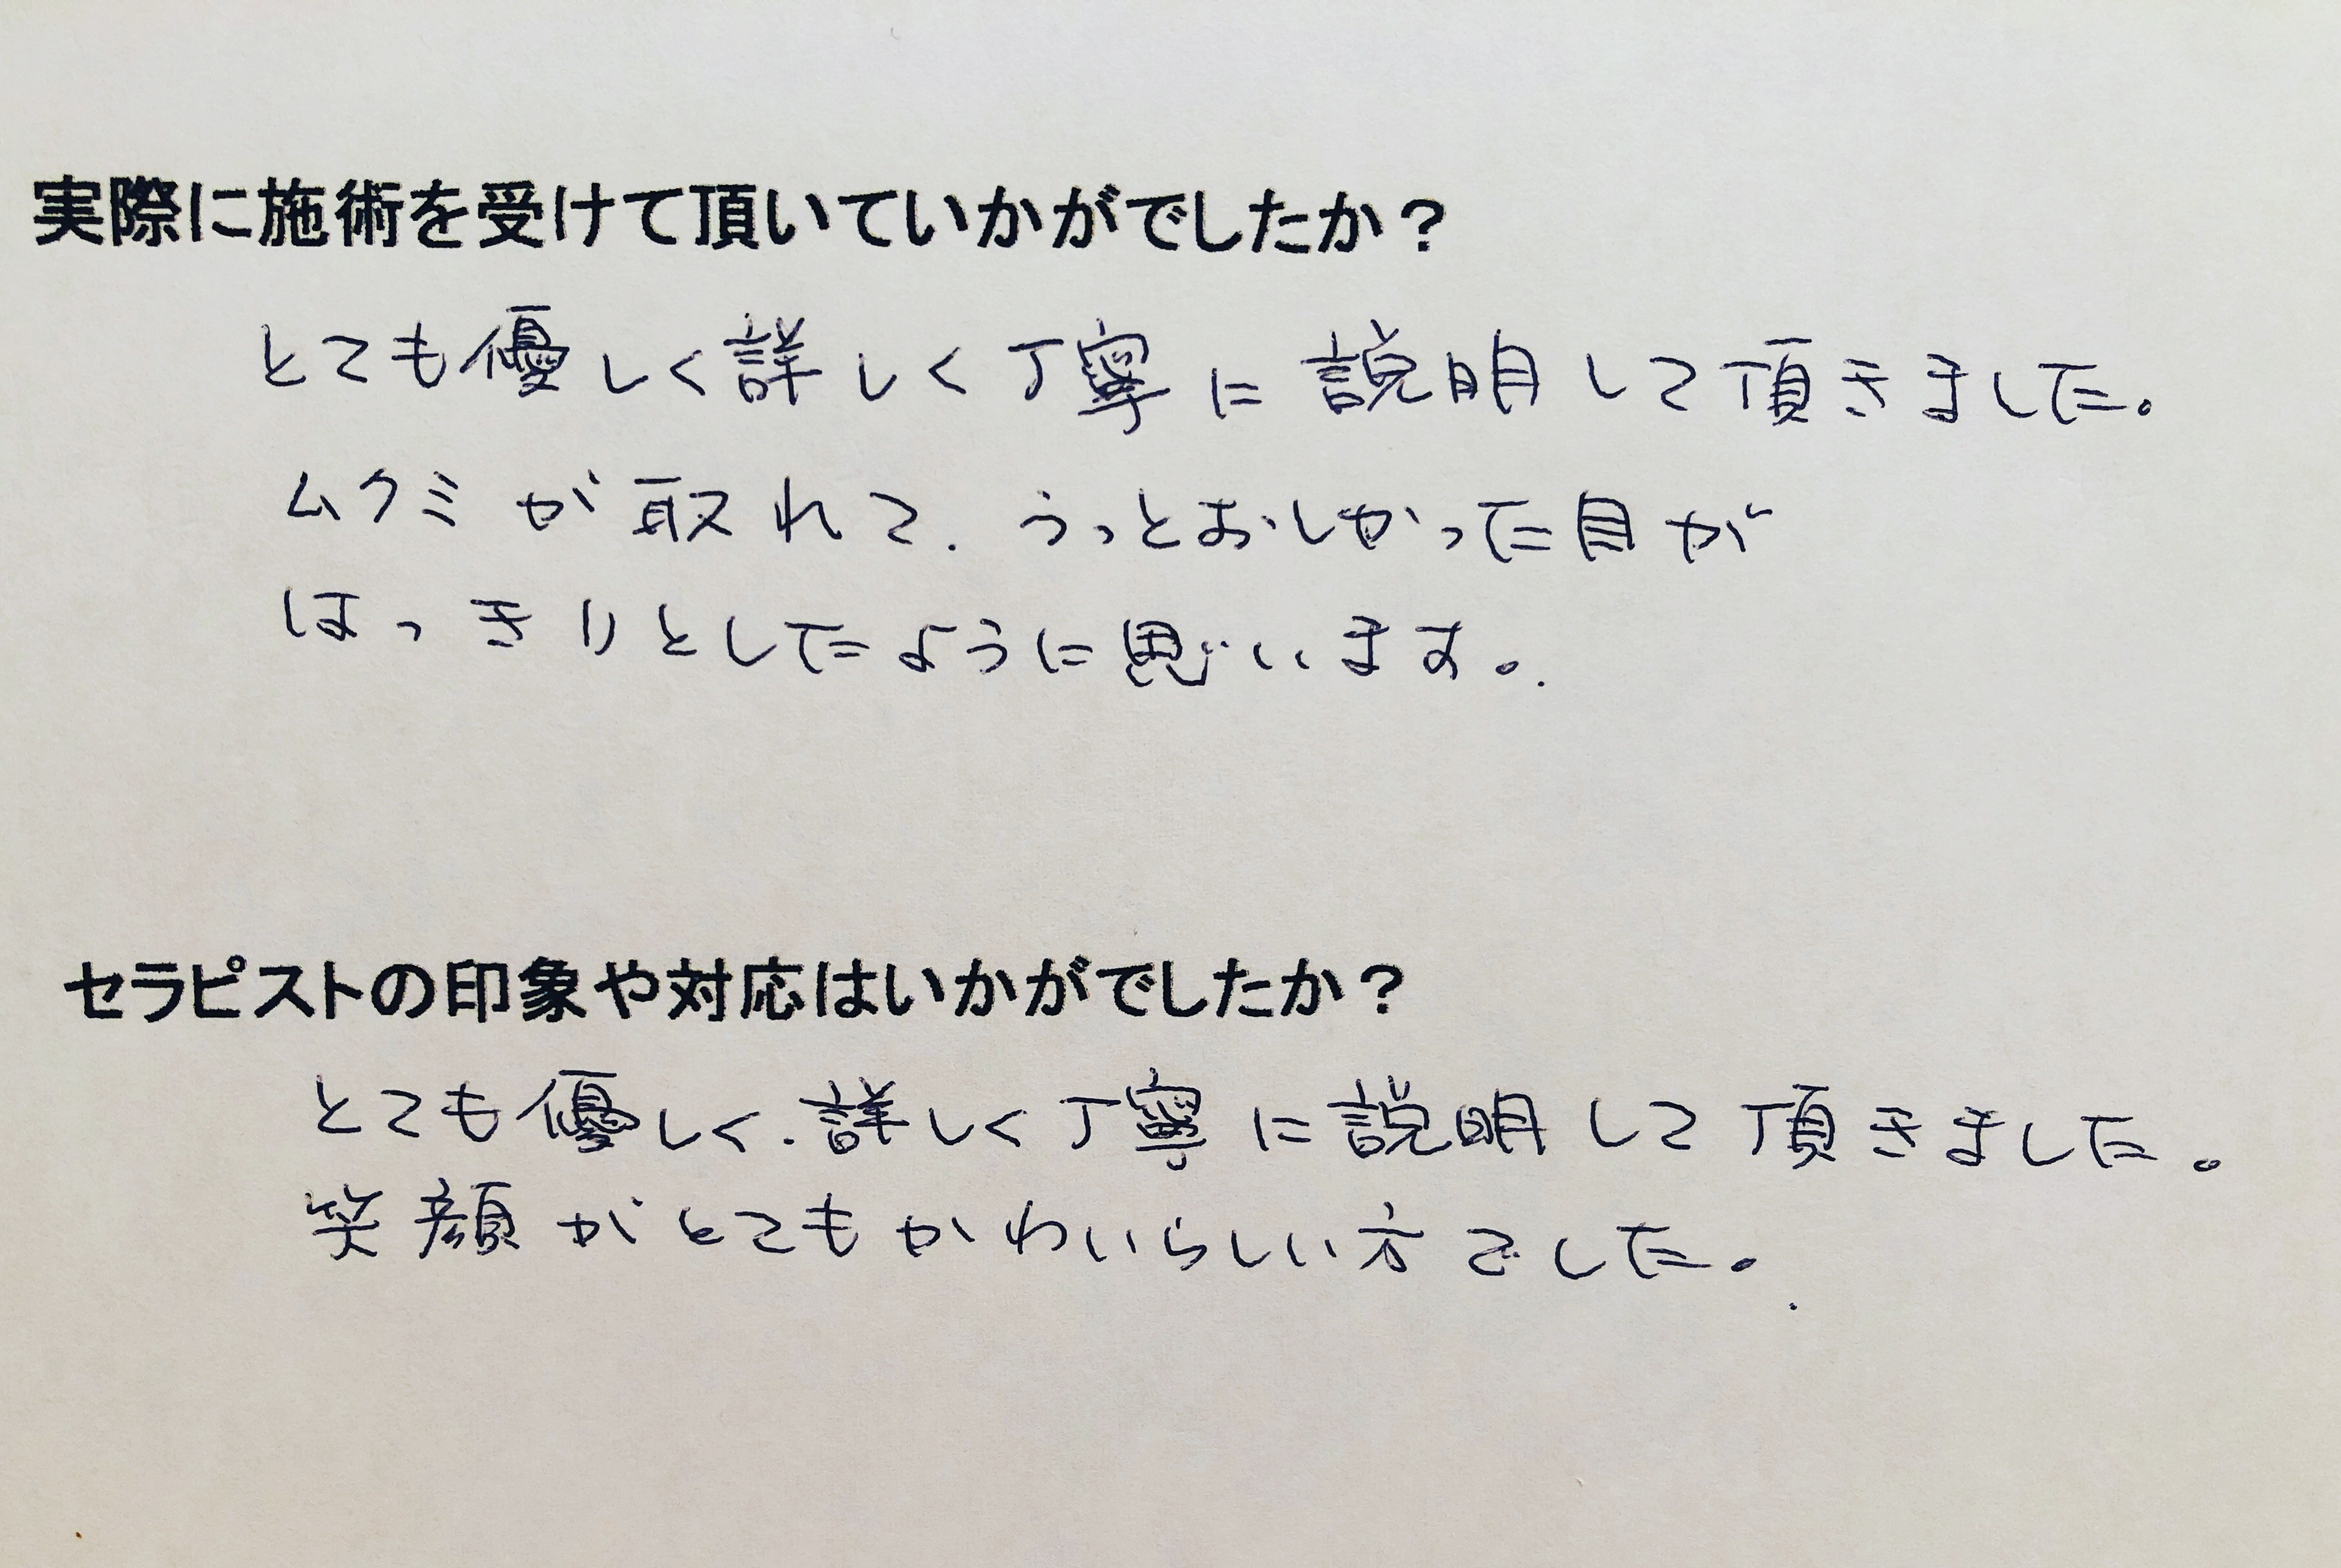 実際に施術を受けて頂いていかがでしたか？
とても優しく詳しく丁寧に説明して頂きました。
ムクミが取れて、うっとおしかった目が
はっきりとしたように思います。
セラピストの印象や対応はいかがでしたか？
とても優しく、詳しく丁寧に説明して頂きました。
笑顔がとてもかわいらしい方でした。